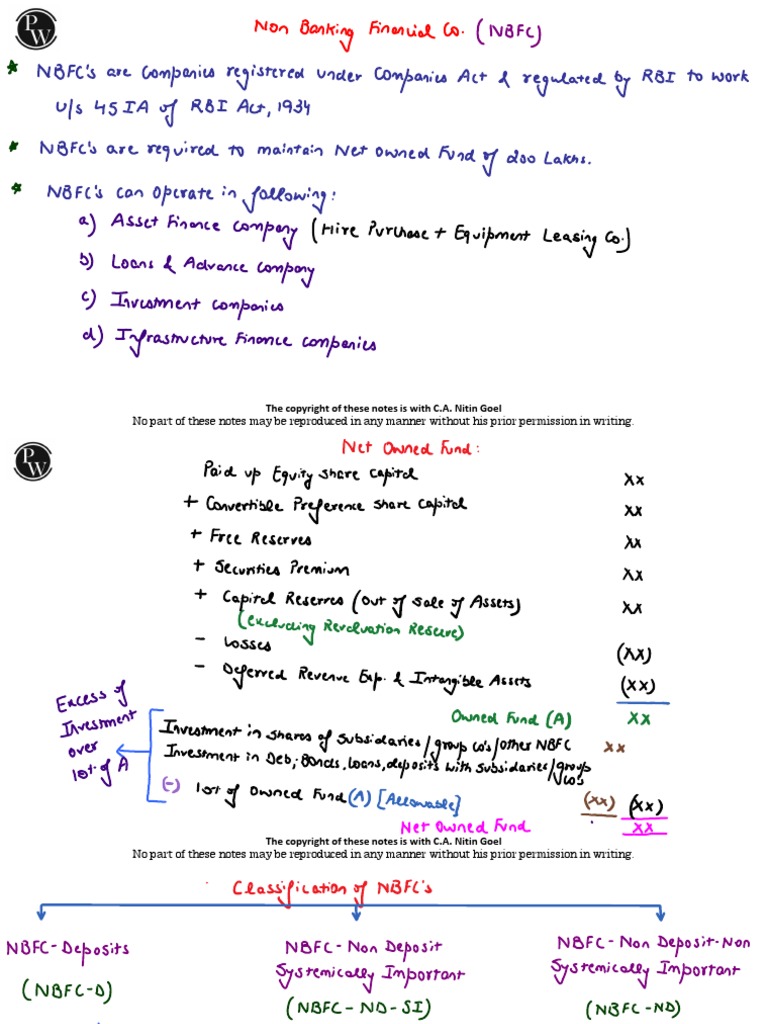 PW
Non Banking Financial Co. (NBFC)
* NBFC's are Companies registered under Companies Act & regulated by RBI to work
u/s 45IA of RBI Act, 1934
* NBFC's are required to maintain Net Owned Fund of 200 Lakhs.
* NBFC's can operate in following:
a) Asset Finance Company (Hire Purchase + Equipment Leasing Co.)
b) Loans & Advance Company
c) Investment companies
d) Infrastructure Finance companies
The copyright of these notes is with C.A. Nitin Goel
No part of these notes may be reproduced in any manner without his prior permission in writing.
PW
Net Owned Fund:
Paid up Equity Share Capital XX
+ Convertible Preference Share Capital XX
+ Free Reserves XX
+ Securities Premium XX
+ Capital Reserves (Out of Sale of Assets) XX
(excluding Revaluation Reserve)
- Losses (XX)
- Deferred Revenue Exp. & Intangible Assets (XX)
Owned Fund (A) XX
Excess of
Investment
over
10% of A
Investment in Shares of Subsidiaries/group co's/other NBFC XX
Investment in Deb., Bonds, loans, deposits with subsidiaries/group
co's
(-) 10% of Owned Fund (A) [Allowable] (XX) (XX)
Net Owned Fund XX
The copyright of these notes is with C.A. Nitin Goel
No part of these notes may be reproduced in any manner without his prior permission in writing.
Classification of NBFC's
NBFC-Deposits
(NBFC-D)
NBFC-Non Deposit
Systemically Important
(NBFC-ND-SI)
NBFC-Non Deposit-Non
Systemically Important
(NBFC-ND)